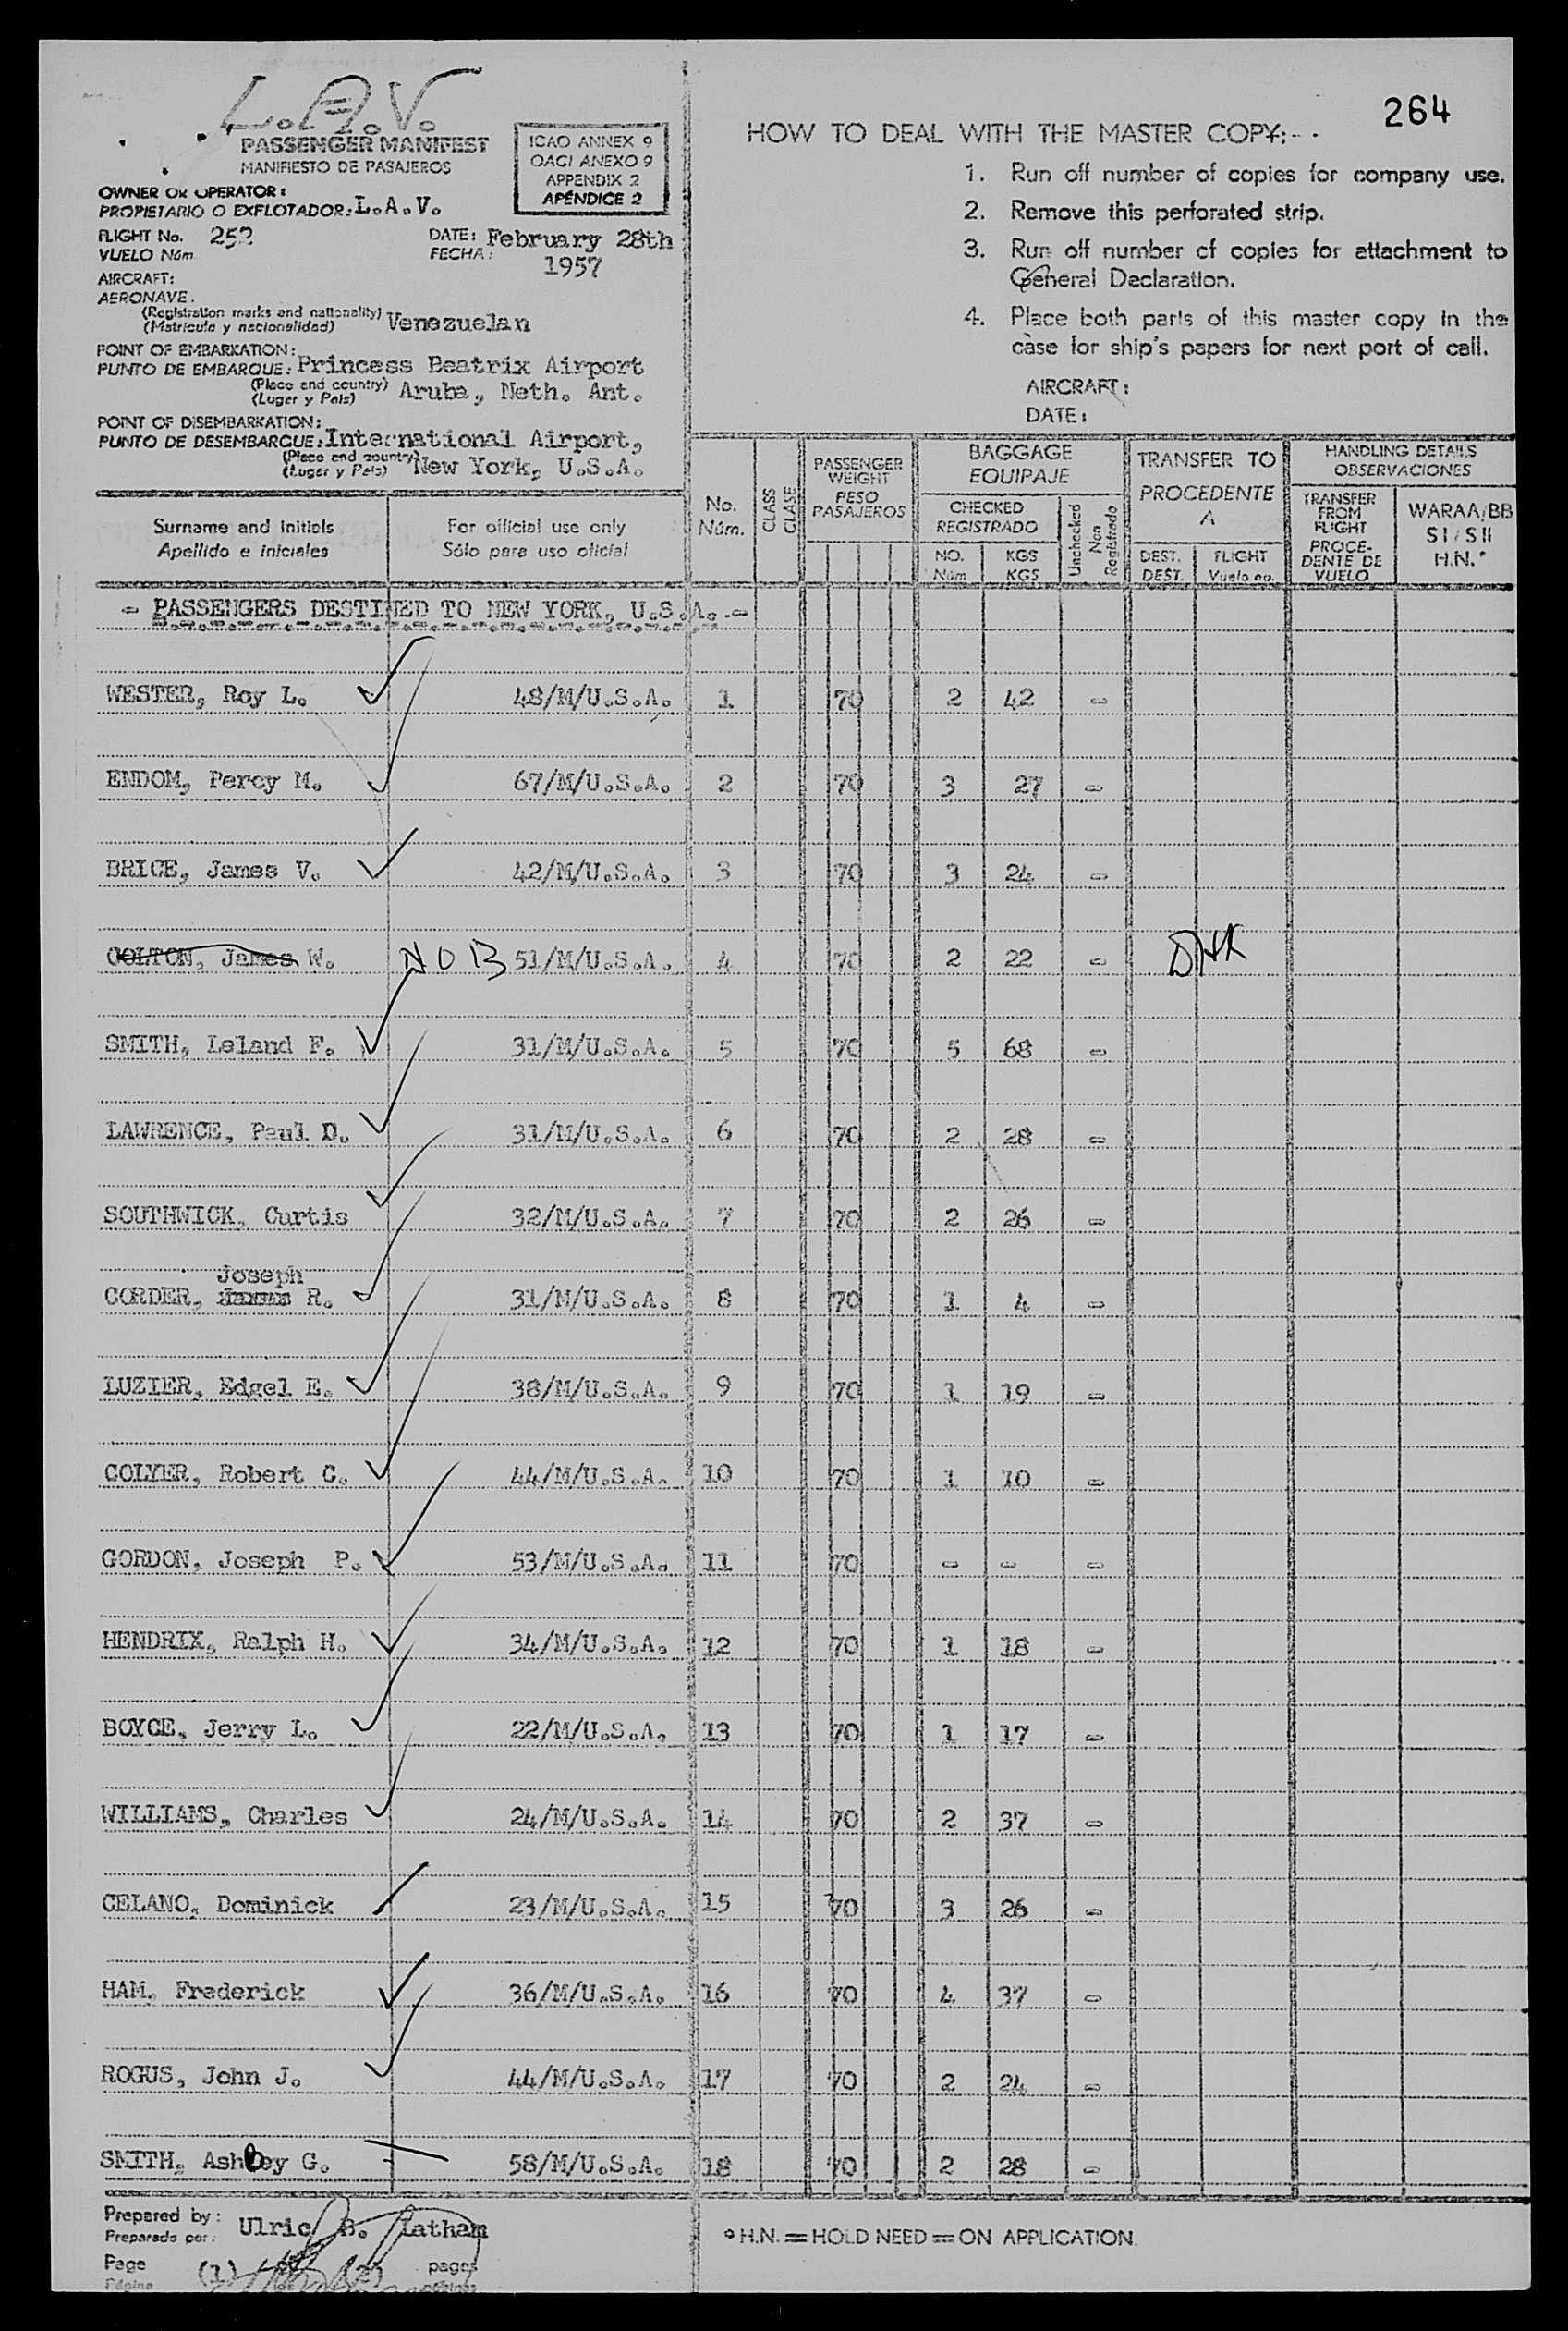 264
L.A.V.
PASSENGER MANIFEST
MANIFIESTO DE PASAJEROS
ICAO ANNEX 9
OACI ANEXO 9
APPENDIX 2
APÉNDICE 2
OWNER OR OPERATOR:
PROPIETARIO O EXPLOTADOR: L.A.V.
FLIGHT No. 252
VUELO Núm
DATE: February 28th
FECHA: 1957
AIRCRAFT:
AERONAVE.
(Registration marks and nationality) Venezuelan
(Matricula y nacionalidad)
POINT OF EMBARKATION:
PUNTO DE EMBARQUE: Princess Beatrix Airport
(Place and country) Aruba, Neth. Ant.
(Lugar y País)
POINT OF DISEMBARKATION:
PUNTO DE DESEMBARQUE: International Airport,
(Place and country) New York, U.S.A.
(Lugar y País)
HOW TO DEAL WITH THE MASTER COPY:-
1. Run off number of copies for company use.
2. Remove this perforated strip.
3. Run off number of copies for attachment to
General Declaration.
4. Place both parts of this master copy in the
case for ship's papers for next port of call.
AIRCRAFT:
DATE:
Surname and Initials
Apellido e iniciales
For official use only
Sólo para uso oficial
No.
Núm.
CLASS
CLASE
PASSENGER
WEIGHT
PESO
PASAJEROS
BAGGAGE
EQUIPAJE
CHECKED
REGISTRADO
NO. KGS
Núm KGS
Unchecked
Non
Registrado
TRANSFER TO
PROCEDENTE
A
DEST. FLIGHT
DEST. Vuelo no.
HANDLING DETAILS
OBSERVACIONES
TRANSFER
FROM
FLIGHT
PROCE-
DENTE DE
VUELO
WARAA/BB
S I / S II
H.N.*
- PASSENGERS DESTINED TO NEW YORK, U.S.A. -
WESTER, Roy L. 48/M/U.S.A. 1 70 2 42 -
ENDOM, Percy M. 67/M/U.S.A. 2 70 3 27 -
BRICE, James V. 42/M/U.S.A. 3 70 3 24 -
COLTON, James W. NOB 51/M/U.S.A. 4 70 2 22 -
SMITH, Leland F. 31/M/U.S.A. 5 70 5 68 -
LAWRENCE, Paul D. 31/M/U.S.A. 6 70 2 28 -
SOUTHWICK, Curtis 32/M/U.S.A. 7 70 2 26 -
Joseph
CORDER, James R. 31/M/U.S.A. 8 70 1 4 -
LUZIER, Edgel E. 38/M/U.S.A. 9 70 1 19 -
COLYER, Robert C. 44/M/U.S.A. 10 70 1 10 -
GORDON, Joseph P. 53/M/U.S.A. 11 70 - - -
HENDRIX, Ralph H. 34/M/U.S.A. 12 70 1 18 -
BOYCE, Jerry L. 22/M/U.S.A. 13 70 1 17 -
WILLIAMS, Charles 24/M/U.S.A. 14 70 2 37 -
CELANO, Dominick 23/M/U.S.A. 15 70 3 26 -
HAM, Frederick 36/M/U.S.A. 16 70 4 37 -
ROGUS, John J. 44/M/U.S.A. 17 70 2 24 -
SMITH, Ashley G. 58/M/U.S.A. 18 70 2 28 -
Prepared by:
Preparado por: Ulric B. Latham
Page (1) (2) pages
Página páginas
* H.N. = HOLD NEED = ON APPLICATION.